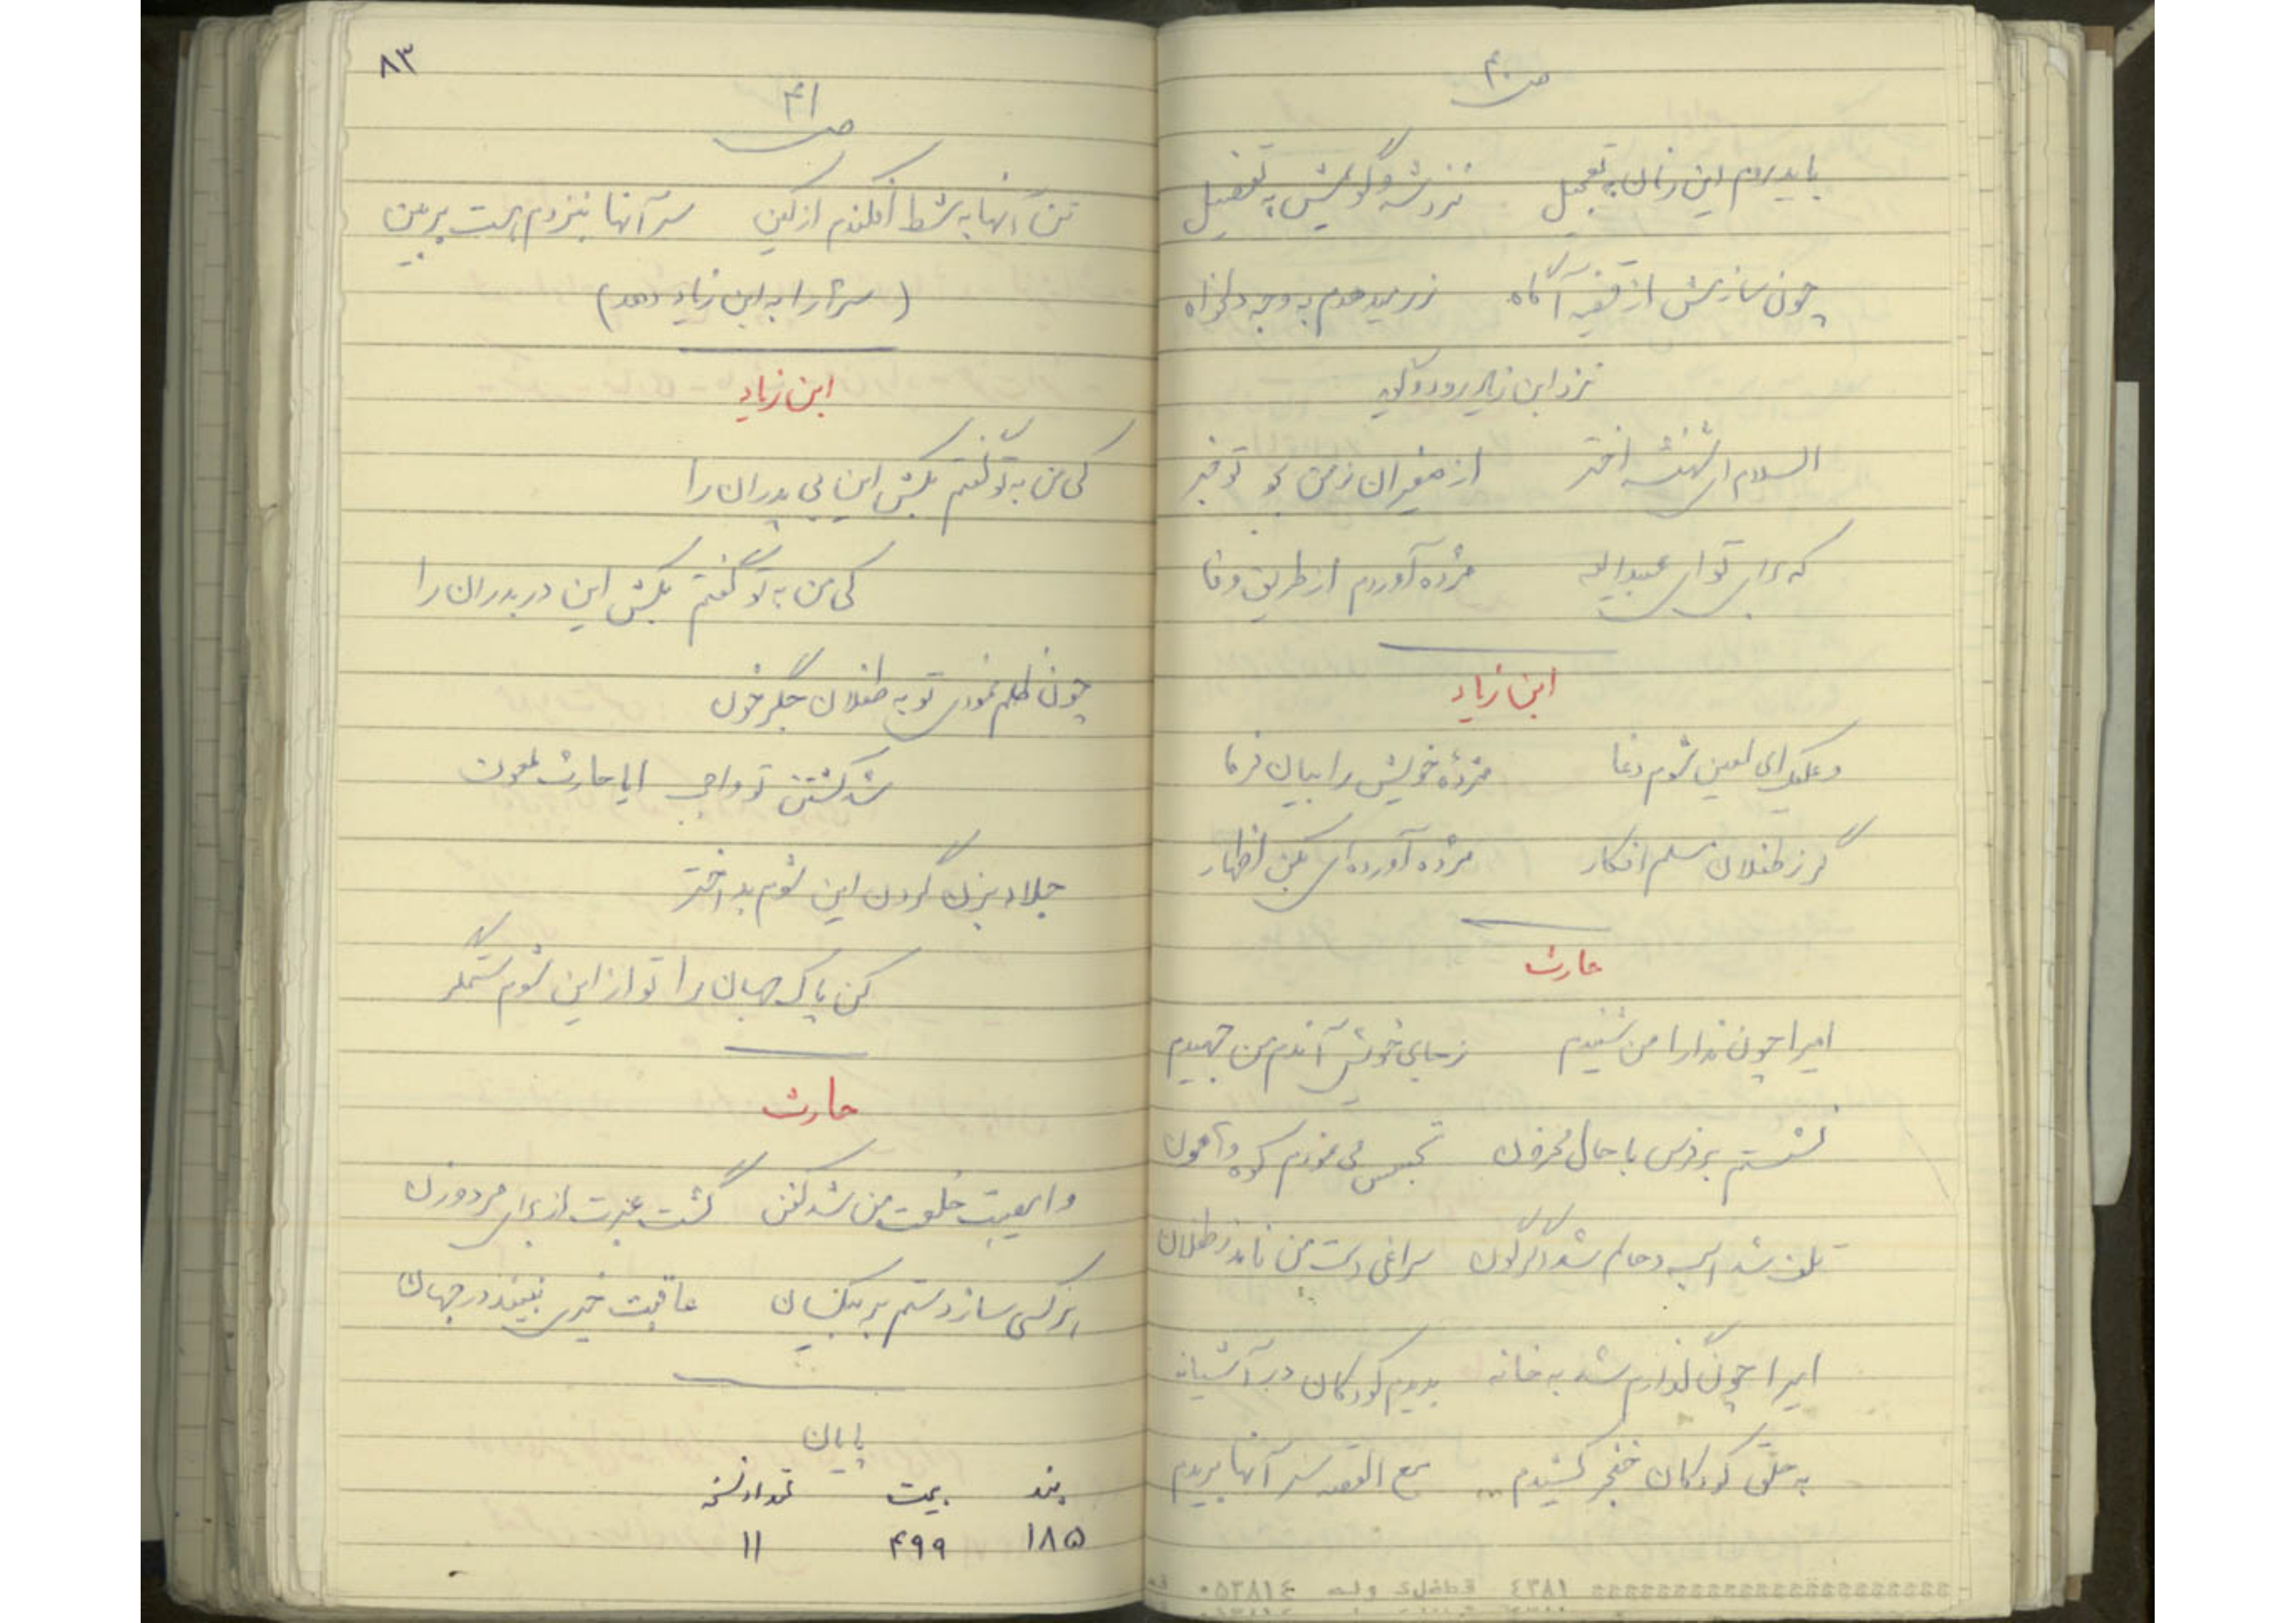 ص ۴۰
باید روم این زمان به تعجیل نزدشه و گویمش به تفصیل
چون سازمش از قضیه آگاه زر میدهدم به وجه دلخواه
نزد ابن زیاد رود و گوید
السلام ای شهنشه اختر از صغیران ز من بجو تو خبر
که برای تو ای عبیداله مژده آوردم از طریق وفا
ابن زیاد
وعلیک ای لعین شوم دغا مژدهٔ خویش را بیان فرما
گر ز طفلان مسلم افکار مژده آورده‌ای بکن اظهار
حارث
امیرا چون ندا را من شنیدم ز جای خویش آندم من جهیدم
نشستم بر فرس با حال محزون تجسس می نمودم کوه و هامون
تلف شد اسب و حالم شد دگرگون سراغی دست من نامد ز طفلان
امیرا چون گذارم شد به خانه بدیدم کودکان در آشیانه
به حلق کودکان خنجر کشیدم مع القصه سر آنها بریدم
۸۳
ص ۴۱
تن آنها به شط افکندم از کین سر آنها بنزدم هست بر بین
(سرها را به ابن زیاد دهد)
ابن زیاد
کی من به تو گفتم بکش این بی پدران را
کی من به تو گفتم بکش این دربدران را
چون ظلم نمودی تو به طفلان جگر خون
شد کشتن تو واجب ایا حارث ملعون
جلاد بزن گردن این شوم بد اختر
کن پاک جهان را تو از این شوم ستمگر
حارث
وامصیبت خلعت من شد کفن گشت عبرت از برای مرد و زن
هر کسی سازد ستم بر بیکسان عاقبت خیری نبیند در جهان
پایان
بند بیت تعداد نسخه
۱۸۵ ۴۹۹ ۱۱